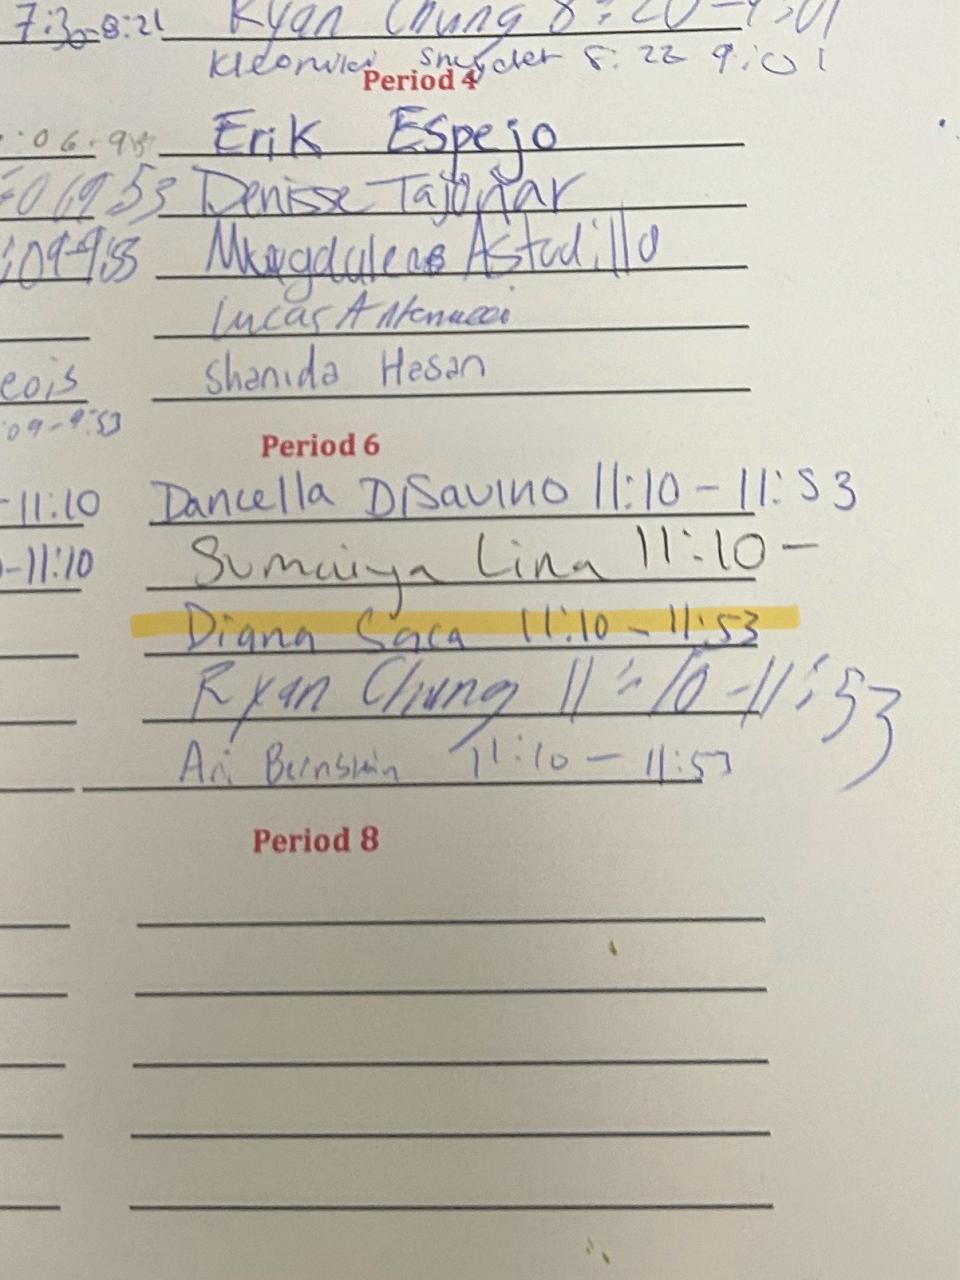 7:30-8:21 Ryan Chung 8:20-9:01
Snyder 8:22 9:01
Period 4
Erik Espejo
Denisse Tajonar
Astudillo
Lucas Antenucci
Shanida Hasan
09-9:53
Period 6
-11:10 Dancella DiSavino 11:10-11:53
-11:10 Sumaiya Lina 11:10-
Diana Saca 11:10-11:53
Ryan Chung 11:10-11:53
Ari Bernstein 11:10-11:53
Period 8